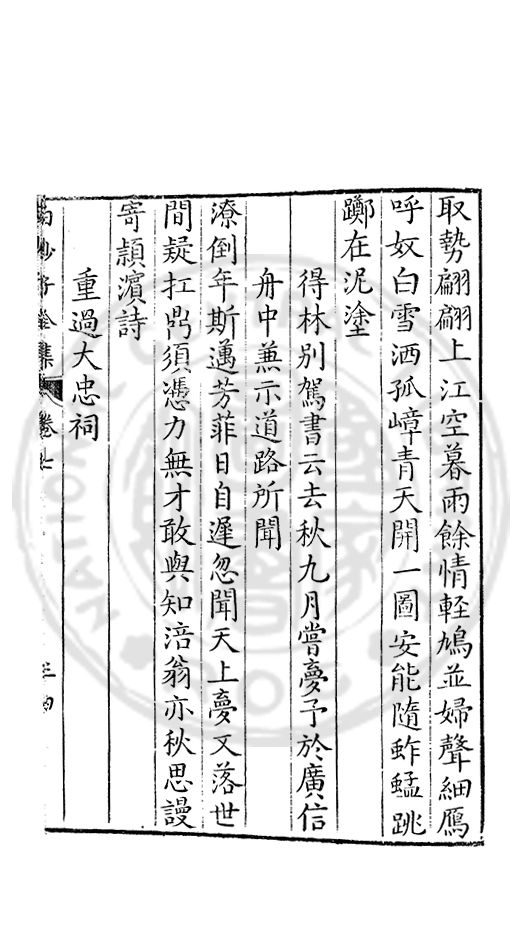 取勢翩翩上江空暮雨餘情軽鳩並婦聲細鴈
呼奴白雪洒孤嶂青天開一圖安能隨蚱蜢跳
躑在泥塗
得林別駕書云去秋九月嘗夢予於廣信
舟中兼示道路所聞
潦倒年斯邁芳菲日自遲忽聞天上夢又落世
間疑扛鼎須憑力無才敢與知涪翁亦秋思謾
寄頴濵詩
重過大忠祠
集 卷七